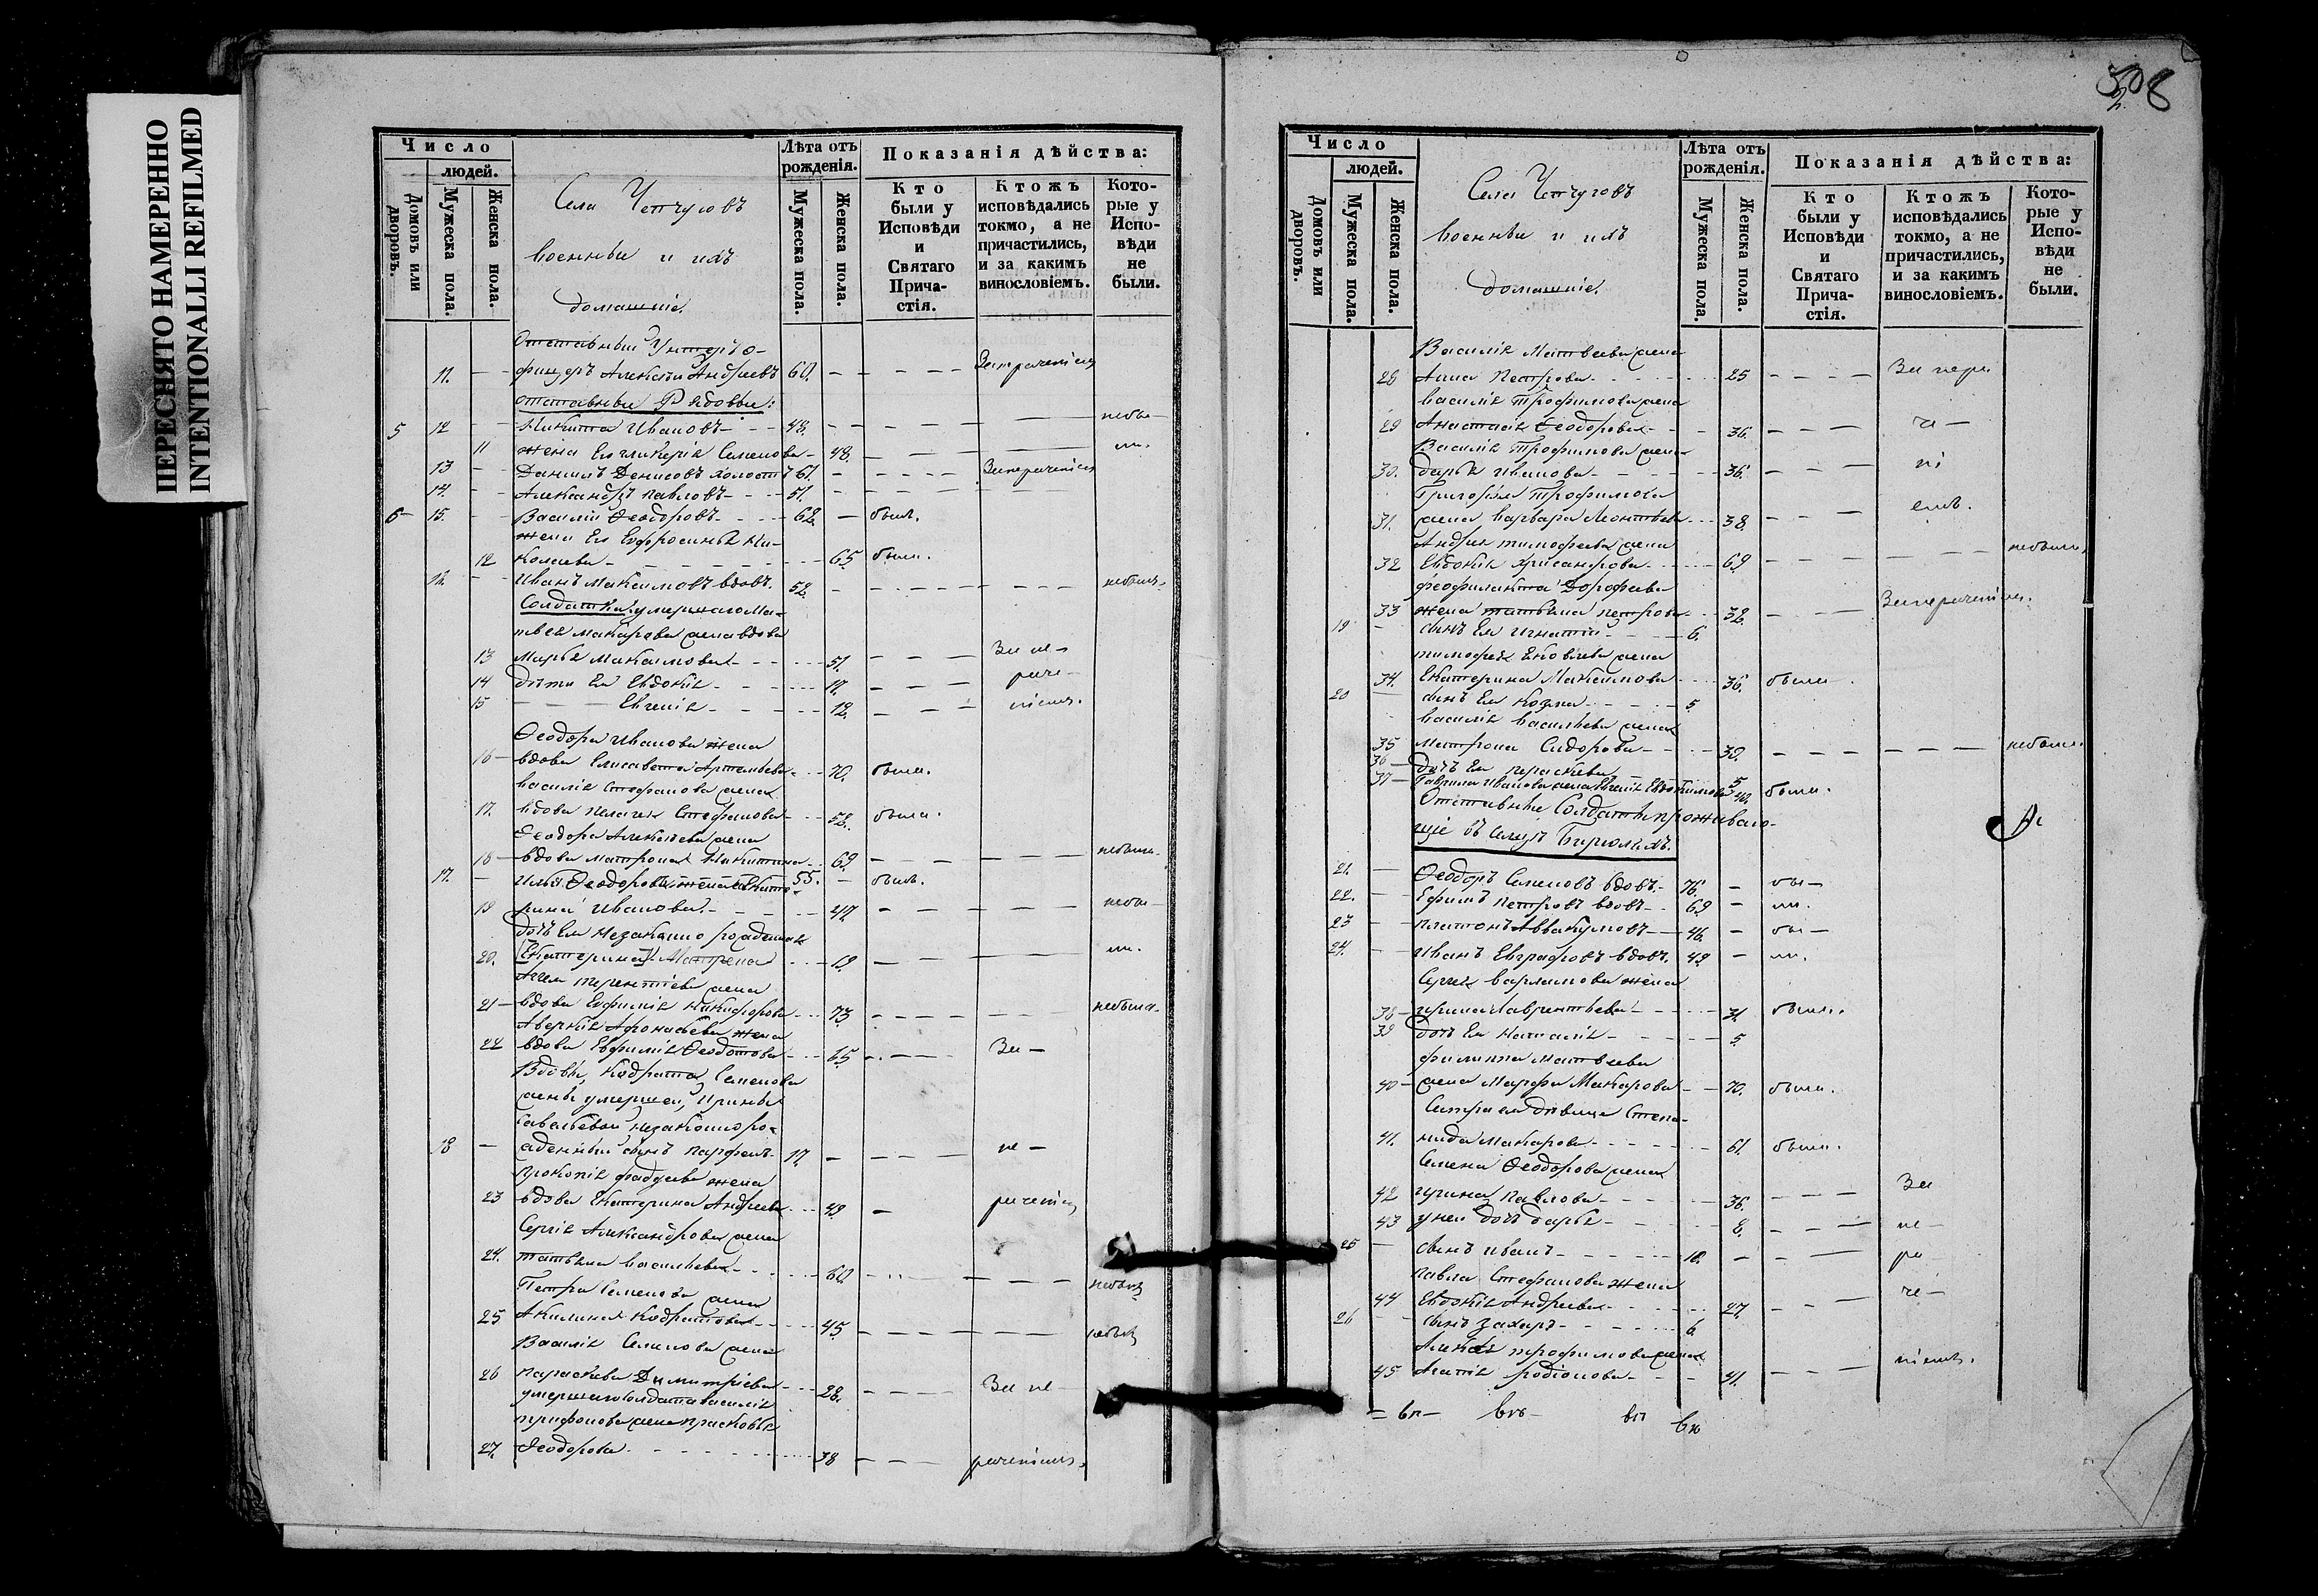 ПЕРЕСНЯТО НАМЕРЕННО
INTENTIONALLI REFILMED
Число
людей.
Домовъ или дворовъ.
Мужеска пола.
Женска пола.
Села Чепчуговъ
военные и ихъ
домашніе.
Лѣта отъ рожденія.
Мужеска пола.
Женска пола.
Показанія дѣйства:
Кто были у Исповѣди и Святаго Прича-стія.
Ктожъ исповѣдались токмо, а не причастились, и за какимъ винословіемъ.
Кото-рые у Испо-вѣди не были.
Отставный Унтеръ о-
11. — фицеръ Алексѣй Андреевъ 60. — — —
отставные Рядовые:
5 12 — Никита Ивановъ — 48. — — — небы—
11 жена Его Гликерія Семенова — 48. — — — ли.
13 — Даніилъ Денисовъ холостъ 61. — — —
14. — Александръ Павловъ — 51. — — —
6 — 15. Василій Ѳеодоровъ — 62. — былъ.
жена Его Евфросинья Ни-
12 колаева — 65 была.
16. — Иванъ Максимовъ вдовъ. 52. — — — небылъ.
Солдатки: умершаго Ма-
твея Макарова жена вдова
13 Марья Максимова — 51. — — — За не—
14 дѣти Ея Евдокія — 17. — — — раче—
15 — — Евгенія — 12. — — — ніемъ.
Ѳеодора Иванова жена
16 — вдова Елисавета Артемьева — 70. была.
Василія Стефанова жена
17. вдова Пелагея Стефанова — 52. была.
Ѳеодора Алексѣева жена
18 — вдова Матрона Никитина — 69. — — — небыла.
17. — Илья Ѳеодоровъ жена Екате- 55. — былъ.
19 рина Иванова. — 47 — — — небы—
дочь Ея незаконно рожденная
20. — 19. — — — ли.
жена
21 — вдова Евфимія Никифорова — 73. — — — небыла.
Аверкія Афонасьева жена
22 вдова Евфимія Ѳеодотова — 65. — — — За —
Вдовы, Кодрата Семенова
жены умершей, Ирины
Савельевой незаконноро-
18 — жденный сынъ Парфенъ — 17. — — — не —
Прокопія Фаддеева жена
23 вдова Екатерина Андреева — 49. —
Сергія Александрова жена
24. Татьяна Васильева — 60. — — —
Петра Семенова жена
25 Акилина Кодратова — 45. — — —
Василія Семенова жена
26 Параскева Димитріева — 28. — — — За не
умершаго солдата Василія
Трифонова жена Прасковья
27. Ѳеодорова — 38 — — — раченіемъ.
308
2.
Число
людей.
Домовъ или дворовъ.
Мужеска пола.
Женска пола.
Села Чепчуговъ
военные и ихъ
домашніе.
Лѣта отъ рожденія.
Мужеска пола.
Женска пола.
Показанія дѣйства:
Кто были у Исповѣди и Святаго Прича-стія.
Ктожъ исповѣдались токмо, а не причастились, и за какимъ винословіемъ.
Кото-рые у Испо-вѣди не были.
Василія Матвеева жена
28 Анна Петрова — 25 — — — За нера
Василія Трофимова жена
29 Анастасія Ѳеодорова — 36. — — — че —
Василія Трофимова жена
30. Дарья Иванова — 36. — — — ні
Григорія Трофимова
31. жена Варвара Леонтьева — 38. — — — емъ.
Андрея Тимофеева жена
32 Евдокія Хрисанфова — 69 — — — небыла.
Феофилакта Дорофеева
33 жена Татьяна Петрова — 32. — — —
19 — сынъ Ея Игнатій — 6.
Тимофея Яковлева жена
34. Екатерина Максимова — 36. была.
20 — сынъ Ея Козма — 5.
Василія Васильева жена
35 Матрона Сидорова — 30. — — — небыла.
36 — дочь Ея Параскева 5
37 — Гаврила Иванова жена Евгенія Евдокимова 40. были.
Отставные Солдаты проживаю-
щіе въ
21. — Ѳеодоръ Семеновъ вдовъ. 76. — бы—
22. — Ефимъ Петровъ вдовъ — 69 — ли.
23 — Платонъ Аввакумовъ — 46. — бы—
24. — Иванъ Евграфовъ вдовъ. 49. — ли.
Сергея Варламова жена
38 — Ирина Лаврентьева — 31. были.
39 дочь Ея Наталія — 5.
Филиппа Матвеева
40 — жена Марфа Макарова — 70. была.
Сестра ея дѣвица Степа-
41. нида Макарова — 61. была.
Семена Ѳеодорова жена
42 Ирина Павлова — 36. — — — За
43 у ней дочь Дарья — 8. — — — не —
25 — сынъ Иванъ — 10. — — — ра
Павла Стефанова жена
44 Евдокія Андреева — 27. — — — че —
26 — сынъ Захаръ — 6.
Алексѣя Трофимова жена
45 Агапія Родіонова — 41. — — — ніемъ.